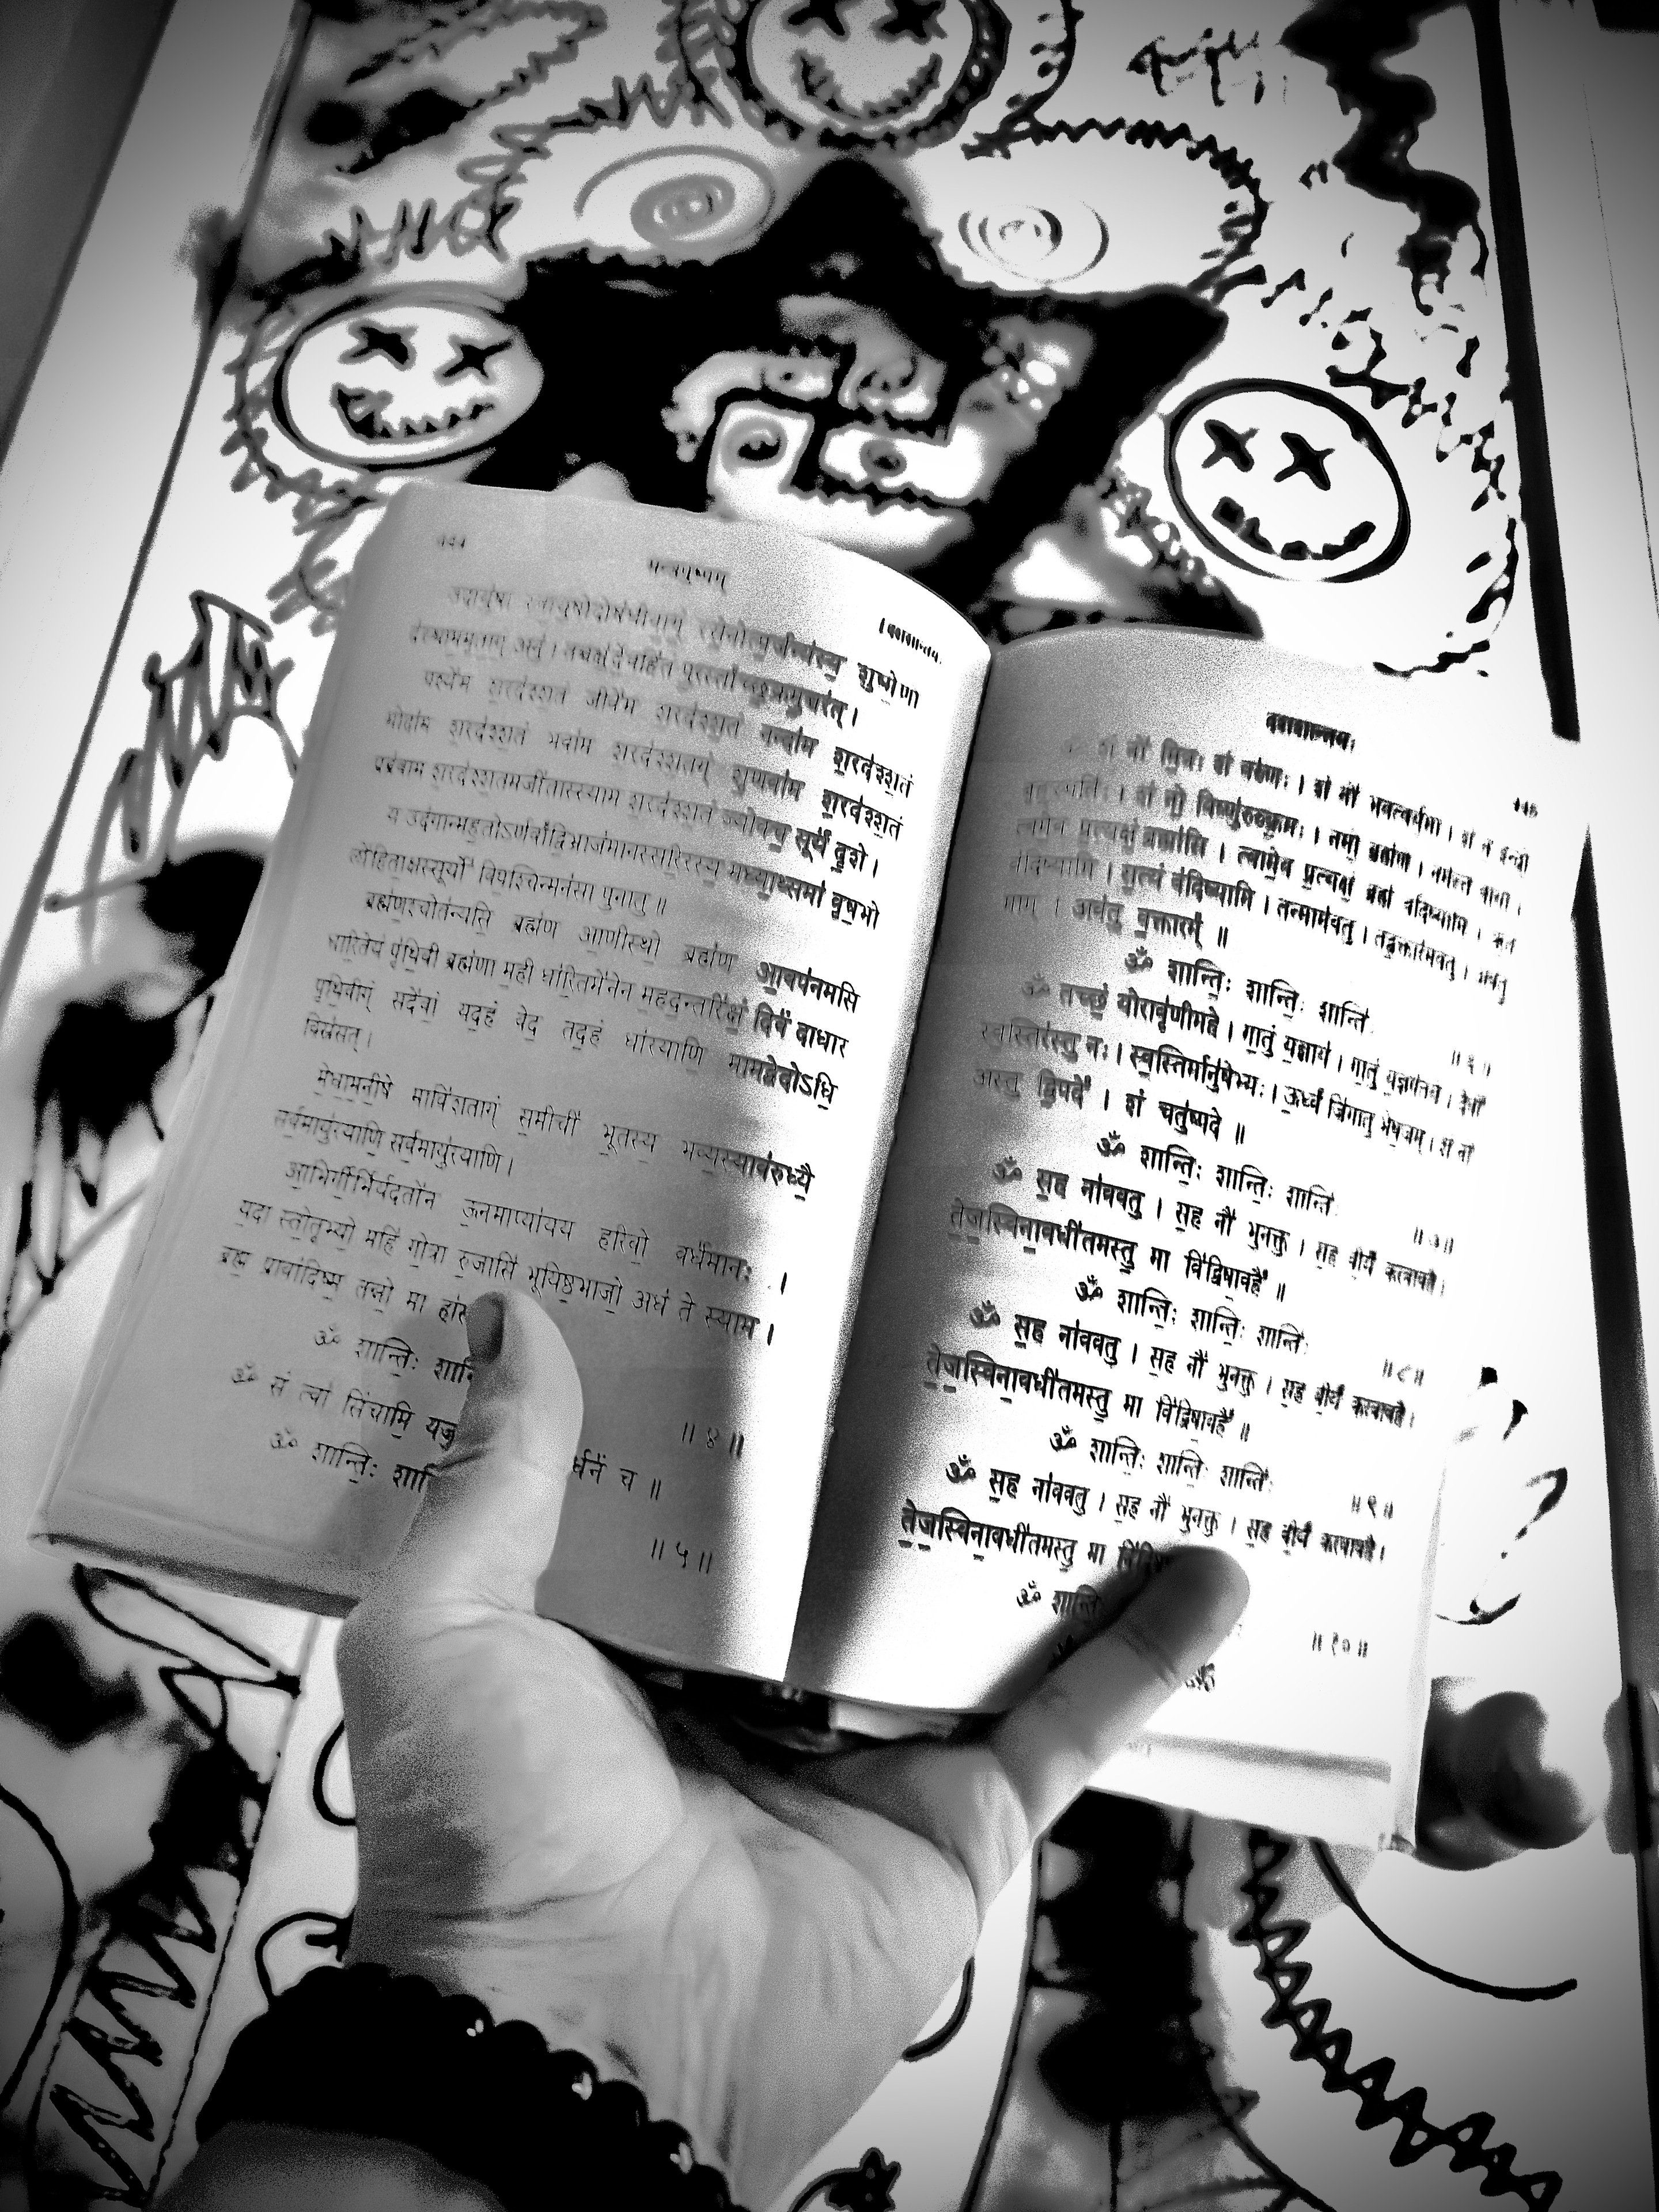 मन्त्रपुष्पम्
दशशान्तयः
शुष्मे॒णा
पश्ये॑म श॒रद॑श्श॒तं जीवे॑म श॒रद॑श्श॒तं नन्दा॑म श॒रद॑श्श॒तं
मोदा॑म श॒रद॑श्श॒तं भवा॑म श॒रद॑श्श॒तग्ं शृ॒णवा॑म श॒रद॑श्श॒तं
प्रब्र॑वाम श॒रद॑श्श॒तमजी॑तास्स्याम श॒रद॑श्श॒तं ज्योक्च॒ सूर्यं॑ दृ॒शे ।
य उद॑गान्मह॒तोऽर्णवा᳚द्वि॒भ्राज॑मानस्सरि॒रस्य॒ मध्या॒थ्समा॑ वृष॒भो
लो॑हिता॒क्षस्सूर्यो॑ विप॒श्चिन्मन॑सा पुनातु ॥
ब्रह्म॑ण॒श्चोत॑न्यसि॒ ब्रह्म॑ण आ॒णीस्थो॒ ब्रह्म॑ण आ॒वप॑नमसि
धारि॒तेयं पृ॑थि॒वी ब्रह्म॑णा म॒ही धा॑रि॒तमे॑नेन म॒हद॒न्तरि॑क्षं॒ दिवं॑ दाधार
पृथि॒वीग्ं सदे॑वां॒ यद॒हं वेद॒ तद॒हं धा॑रयाणि॒ मामद्वेदोऽधि॒
विस्र॑सत् ।
मे॒धा॒म॒नी॒षे मावि॑शताग्ं स॒मीची॑ भू॒तस्य॒ भव्य॒स्याव॑रुध्यै॒
सर्व॒मायु॑रयाणि॒ सर्व॒मायु॑रयाणि ।
आ॒भिर्गी॒र्भिर्यदतो॑न ऊ॒नमाप्या॑यय हरिवो॒ वर्ध॑मानः ।
य॒दा स्तो॒तृभ्यो॒ महि॑ गो॒त्रा रु॒जासि॑ भूयिष्ठ॒भाजो॒ अध॑ ते स्याम ।
ब्रह्म॒ प्रावा॑दिष्म॒ तन्नो॒ मा हा॑स
ॐ शान्तिः॒ शान्ति ॥ ४ ॥
ॐ सं त्वा॑ सिंचामि॒ यजु॒ र्धनं॑ च ॥
ॐ शान्तिः॒ शान्ति ॥ ५ ॥
दशशान्तयः
शं नो॑ मि॒त्रः शं वरु॑णः । शं नो॑ भवत्वर्य॒मा । शं न इन्द्रो॒
बृह॒स्पतिः॑ । शं नो॒ विष्णु॑रुरुक्र॒मः । नमो॒ ब्रह्म॑णे । नम॑स्ते वायो ।
त्वमे॒व प्र॒त्यक्षं॒ ब्रह्मा॑सि । त्वामे॒व प्र॒त्यक्षं॒ ब्रह्म॑ वदिष्यामि । ऋ॒तं
व॑दिष्यामि । स॒त्यं व॑दिष्यामि । तन्माम॑वतु । तद्व॒क्तार॑मवतु । अव॑तु॒
माम् । अव॑तु व॒क्तारम्᳚ ॥
ॐ शान्तिः॒ शान्तिः॒ शान्तिः॑ ॥ ६ ॥
ॐ तच्छं॒ योरावृ॑णीमहे । गा॒तुं य॒ज्ञाय॑ । गा॒तुं य॒ज्ञप॑तये । दैवी᳚
स्व॒स्तिर॑स्तु नः । स्व॒स्तिर्मानु॑षेभ्यः । ऊ॒र्ध्वं जि॑गातु भेष॒जम् । शं नो॑
अस्तु द्वि॒पदे᳚ । शं चतु॑ष्पदे ॥
ॐ शान्तिः॒ शान्तिः॒ शान्तिः॑ ॥ ७ ॥
ॐ स॒ह ना॑ववतु । स॒ह नौ॑ भुनक्तु । स॒ह वी॒र्यं॑ करवावहै ।
ते॒ज॒स्विना॒वधी॑तमस्तु॒ मा वि॑द्विषा॒वहै᳚ ॥
ॐ शान्तिः॒ शान्तिः॒ शान्तिः॑ ॥ ८ ॥
ॐ स॒ह ना॑ववतु । स॒ह नौ॑ भुनक्तु । स॒ह वी॒र्यं॑ करवावहै ।
ते॒ज॒स्विना॒वधी॑तमस्तु॒ मा वि॑द्विषा॒वहै᳚ ॥
ॐ शान्तिः॒ शान्तिः॒ शान्तिः॑ ॥ ९ ॥
ॐ स॒ह ना॑ववतु । स॒ह नौ॑ भुनक्तु । स॒ह वी॒र्यं॑ करवावहै ।
ते॒ज॒स्विना॒वधी॑तमस्तु॒ मा
ॐ शान्तिः ॥ १० ॥